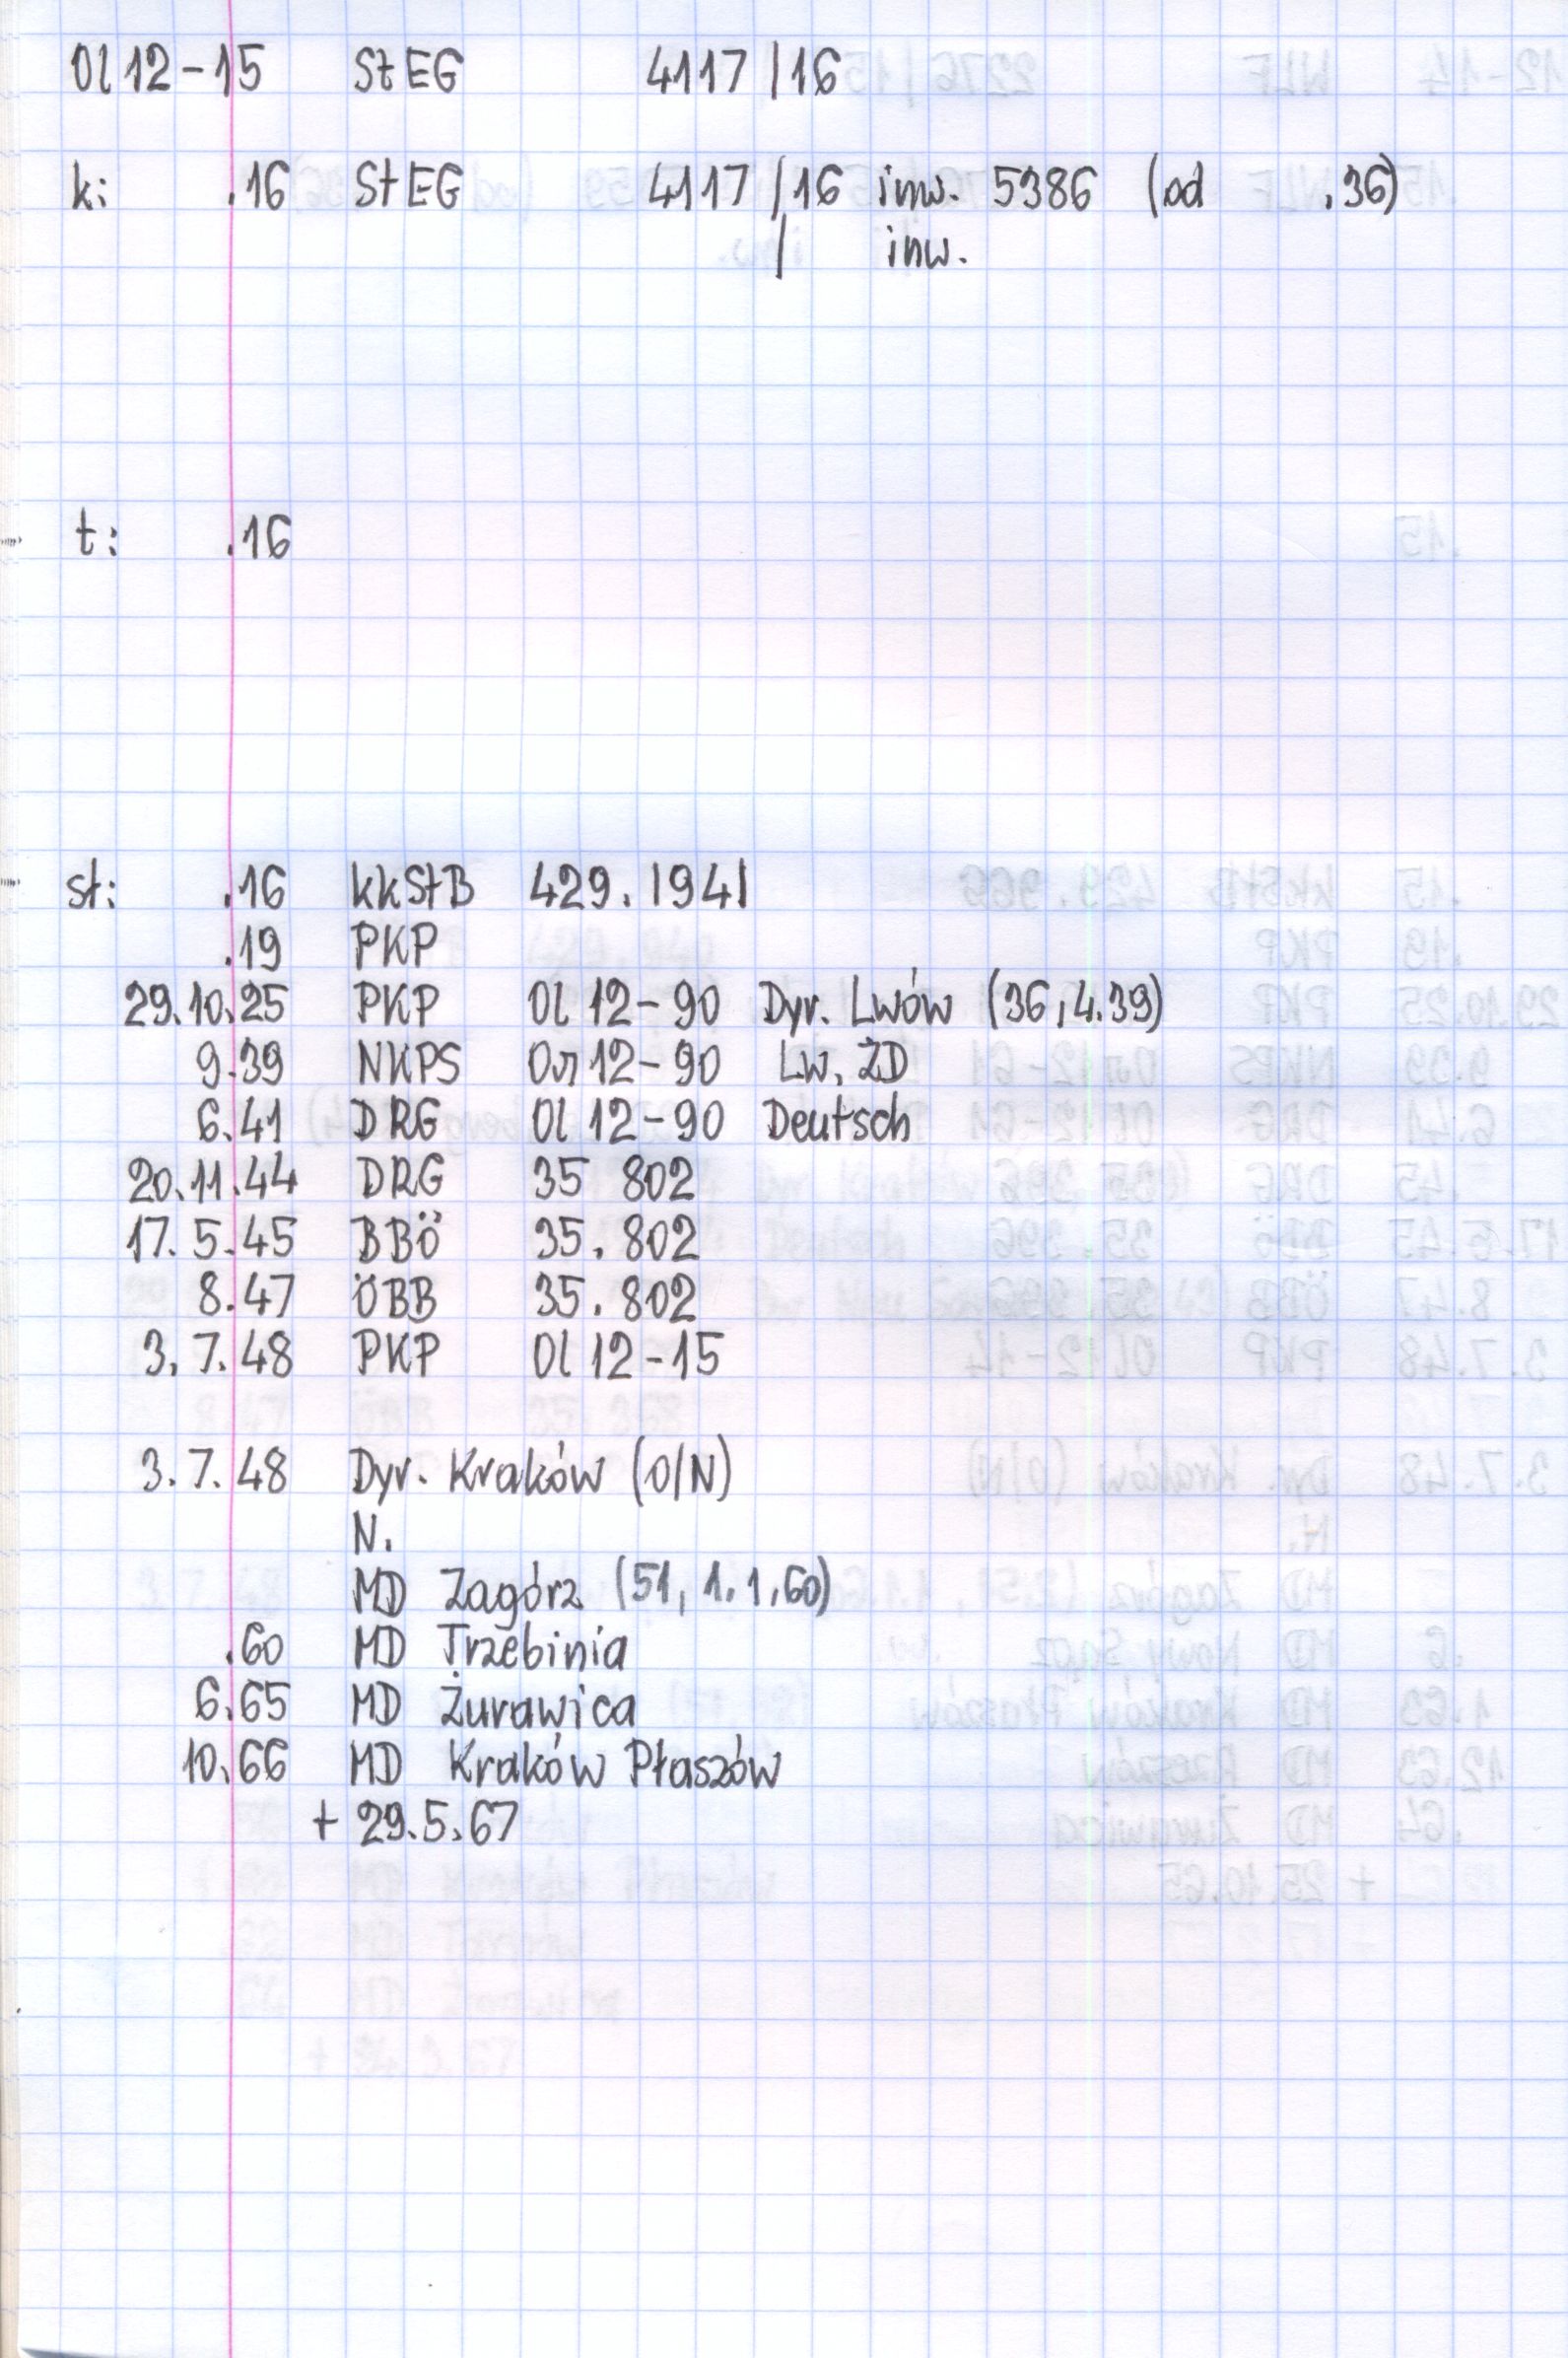 Ol 12-15 StEG 4117/16
k: .16 StEG 4117/16 inw. 5386 (od .36)
/ inw.
t: .16
st: .16 kkStB 429.1941
.19 PKP
29.10.25 PKP Ol 12-90 Dyr. Lwów (36, 4.39)
9.39 NKPS Ол 12-90 Lw. ŻD
6.41 DRG Ol 12-90 Deutsch
20.11.44 DRG 35 802
17.5.45 BBÖ 35.802
8.47 ÖBB 35.802
3.7.48 PKP Ol 12-15
3.7.48 Dyr. Kraków (O/N)
N.
MD Zagórz (51, 1.1.60)
.60 MD Trzebinia
6.65 MD Żurawica
10.66 MD Kraków Płaszów
+ 29.5.67